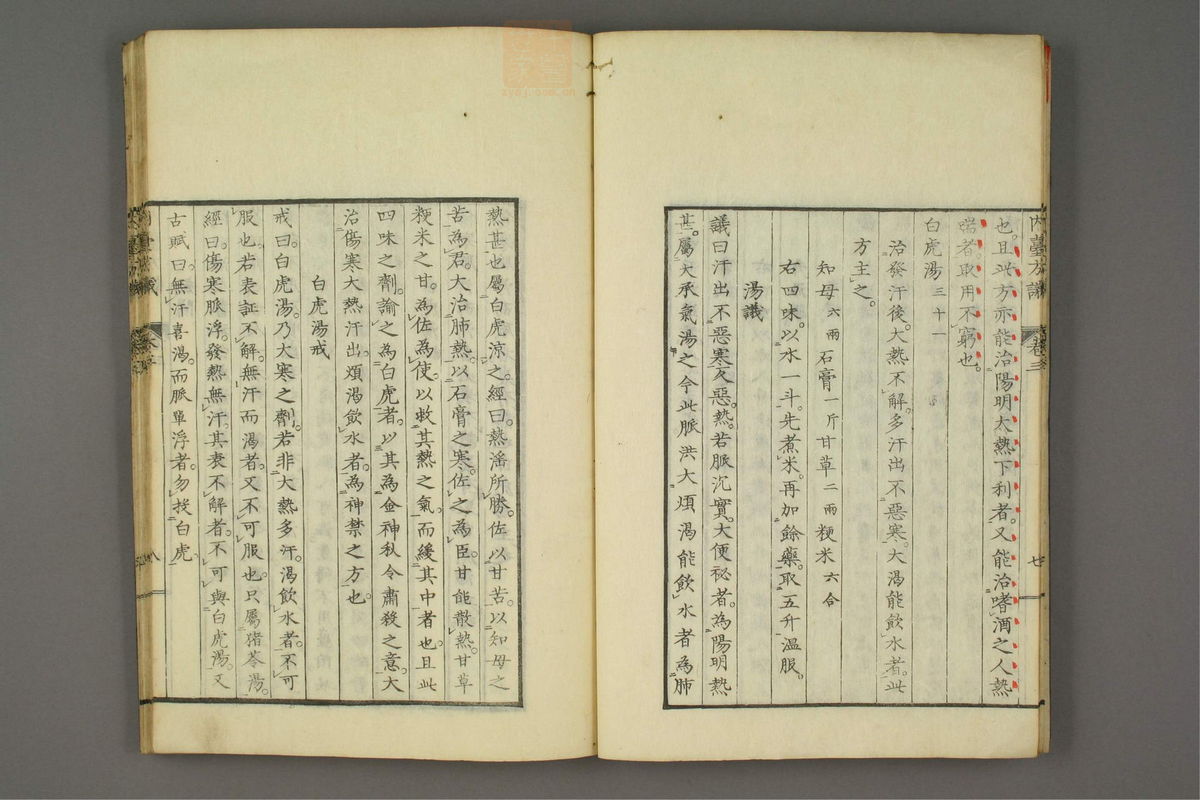 也且此方亦能治陽明大熱下利者又能治嗜酒之人熱
喘者取用不窮也
白虎湯三十一
治發汗後大熱不解多汗出不惡寒大渴能飲水者此
方主之
知母六兩石膏一斤甘草二兩粳米六合
右四味以水一斗先煮米再加餘藥取五升溫服
湯議
議曰汗出不惡寒反惡熱若脈沉實大便秘者為陽明熱
甚屬大承氣湯之今此脈洪大煩渴能飲水者為肺
熱甚也屬白虎涼之經曰熱淫所勝佐以甘苦以知母之
苦為君大治肺熱以石膏之寒佐之為臣甘能散熱甘草
粳米之甘為佐為使以救其熱之氣而緩其中者也且此
四味之劑諭之為白虎者以其為金神私令肅殺之意大
治傷寒大熱汗出煩渴飲水者為神禁之方也
白虎湯戒
戒曰白虎湯乃大寒之劑若非大熱多汗渴飲水者不可
服也若表証不解無汗而渴者又不可服也只屬猪苓湯
經曰傷寒脈浮發熱無汗其表不解者不可與白虎湯又
古賦曰無汗喜渴而脈單浮者勿投白虎